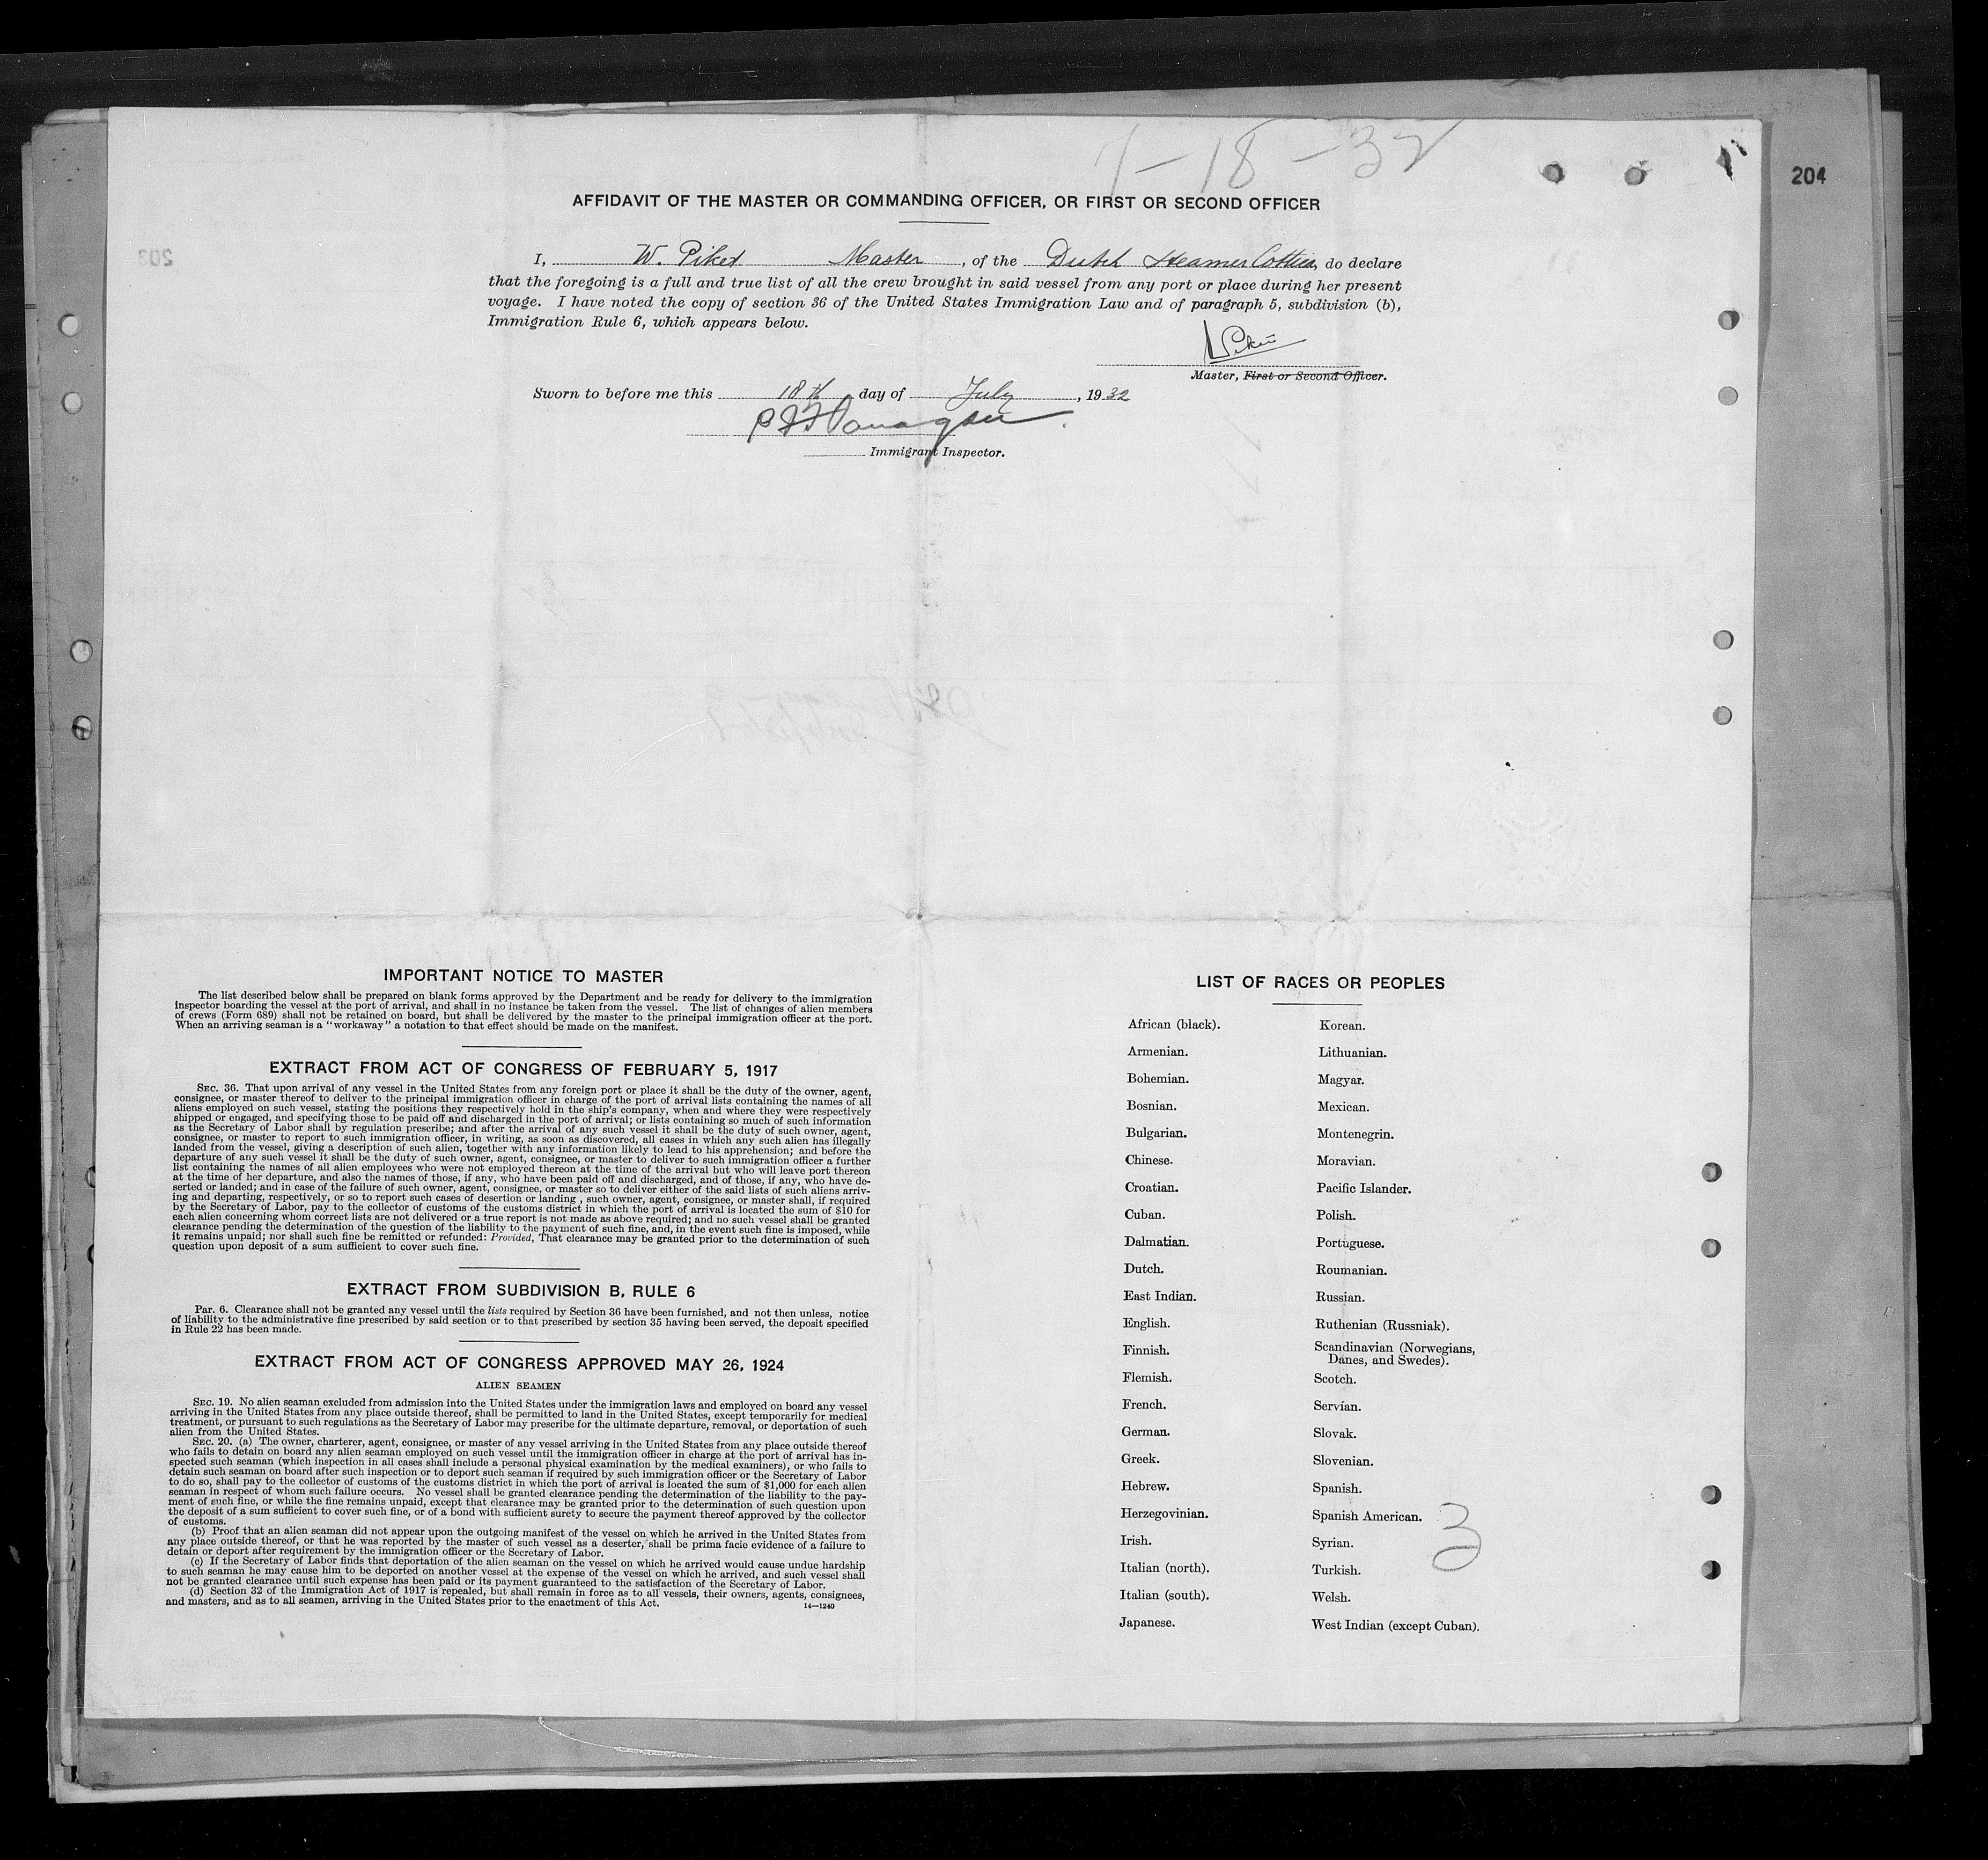 7-18-32
204
AFFIDAVIT OF THE MASTER OR COMMANDING OFFICER, OR FIRST OR SECOND OFFICER
I, W. Piket Master, of the Dutch Steamer Cottica, do declare
that the foregoing is a full and true list of all the crew brought in said vessel from any port or place during her present
voyage. I have noted the copy of section 36 of the United States Immigration Law and of paragraph 5, subdivision (b),
Immigration Rule 6, which appears below.
Piket
Master, First or Second Officer.
Sworn to before me this 18th day of July, 1932
Immigrant Inspector.
203
IMPORTANT NOTICE TO MASTER
The list described below shall be prepared on blank forms approved by the Department and be ready for delivery to the immigration
inspector boarding the vessel at the port of arrival, and shall in no instance be taken from the vessel. The list of changes of alien members
of crews (Form 689) shall not be retained on board, but shall be delivered by the master to the principal immigration officer at the port.
When an arriving seaman is a "workaway" a notation to that effect should be made on the manifest.
EXTRACT FROM ACT OF CONGRESS OF FEBRUARY 5, 1917
SEC. 36. That upon arrival of any vessel in the United States from any foreign port or place it shall be the duty of the owner, agent,
consignee, or master thereof to deliver to the principal immigration officer in charge of the port of arrival lists containing the names of all
aliens employed on such vessel, stating the positions they respectively hold in the ship's company, when and where they were respectively
shipped or engaged, and specifying those to be paid off and discharged in the port of arrival; or lists containing so much of such information
as the Secretary of Labor shall by regulation prescribe; and after the arrival of any such vessel it shall be the duty of such owner, agent,
consignee, or master to report to such immigration officer, in writing, as soon as discovered, all cases in which any such alien has illegally
landed from the vessel, giving a description of such alien, together with any information likely to lead to his apprehension; and before the
departure of any such vessel it shall be the duty of such owner, agent, consignee, or master to deliver to such immigration officer a further
list containing the names of all alien employees who were not employed thereon at the time of the arrival but who will leave port thereon
at the time of her departure, and also the names of those, if any, who have been paid off and discharged, and of those, if any, who have de-
serted or landed; and in case of the failure of such owner, agent, consignee, or master so to deliver either of the said lists of such aliens arriv-
ing and departing, respectively, or so to report such cases of desertion or landing , such owner, agent, consignee, or master shall, if required
by the Secretary of Labor, pay to the collector of customs of the customs district in which the port of arrival is located the sum of $10 for
each alien concerning whom correct lists are not delivered or a true report is not made as above required; and no such vessel shall be granted
clearance pending the determination of the question of the liability to the payment of such fine, and, in the event such fine is imposed, while
it remains unpaid; nor shall such fine be remitted or refunded: Provided, That clearance may be granted prior to the determination of such
question upon deposit of a sum sufficient to cover such fine.
EXTRACT FROM SUBDIVISION B, RULE 6
Par. 6. Clearance shall not be granted any vessel until the lists required by Section 36 have been furnished, and not then unless, notice
of liability to the administrative fine prescribed by said section or to that prescribed by section 35 having been served, the deposit specified
in Rule 22 has been made.
EXTRACT FROM ACT OF CONGRESS APPROVED MAY 26, 1924
ALIEN SEAMEN
SEC. 19. No alien seaman excluded from admission into the United States under the immigration laws and employed on board any vessel
arriving in the United States from any place outside thereof, shall be permitted to land in the United States, except temporarily for medical
treatment, or pursuant to such regulations as the Secretary of Labor may prescribe for the ultimate departure, removal, or deportation of such
alien from the United States.
SEC. 20. (a) The owner, charterer, agent, consignee, or master of any vessel arriving in the United States from any place outside thereof
who fails to detain on board any alien seaman employed on such vessel until the immigration officer in charge at the port of arrival has in-
spected such seaman (which inspection in all cases shall include a personal physical examination by the medical examiners), or who fails to
detain such seaman on board after such inspection or to deport such seaman if required by such immigration officer or the Secretary of Labor
to do so, shall pay to the collector of customs of the customs district in which the port of arrival is located the sum of $1,000 for each alien
seaman in respect of whom such failure occurs. No vessel shall be granted clearance pending the determination of the liability to the pay-
ment of such fine, or while the fine remains unpaid, except that clearance may be granted prior to the determination of such question upon
the deposit of a sum sufficient to cover such fine, or of a bond with sufficient surety to secure the payment thereof approved by the collector
of customs.
(b) Proof that an alien seaman did not appear upon the outgoing manifest of the vessel on which he arrived in the United States from
any place outside thereof, or that he was reported by the master of such vessel as a deserter, shall be prima facie evidence of a failure to
detain or deport after requirement by the immigration officer or the Secretary of Labor.
(c) If the Secretary of Labor finds that deportation of the alien seaman on the vessel on which he arrived would cause undue hardship
to such seaman he may cause him to be deported on another vessel at the expense of the vessel on which he arrived, and such vessel shall
not be granted clearance until such expense has been paid or its payment guaranteed to the satisfaction of the Secretary of Labor.
(d) Section 32 of the Immigration Act of 1917 is repealed, but shall remain in force as to all vessels, their owners, agents, consignees,
and masters, and as to all seamen, arriving in the United States prior to the enactment of this Act.
14—1240
LIST OF RACES OR PEOPLES
African (black).
Armenian.
Bohemian.
Bosnian.
Bulgarian.
Chinese.
Croatian.
Cuban.
Dalmatian.
Dutch.
East Indian.
English.
Finnish.
Flemish.
French.
German.
Greek.
Hebrew.
Herzegovinian.
Irish.
Italian (north).
Italian (south).
Japanese.
Korean.
Lithuanian.
Magyar.
Mexican.
Montenegrin.
Moravian.
Pacific Islander.
Polish.
Portuguese.
Roumanian.
Russian.
Ruthenian (Russniak).
Scandinavian (Norwegians,
Danes, and Swedes).
Scotch.
Servian.
Slovak.
Slovenian.
Spanish.
Spanish American.
Syrian.
Turkish.
Welsh.
West Indian (except Cuban).
3